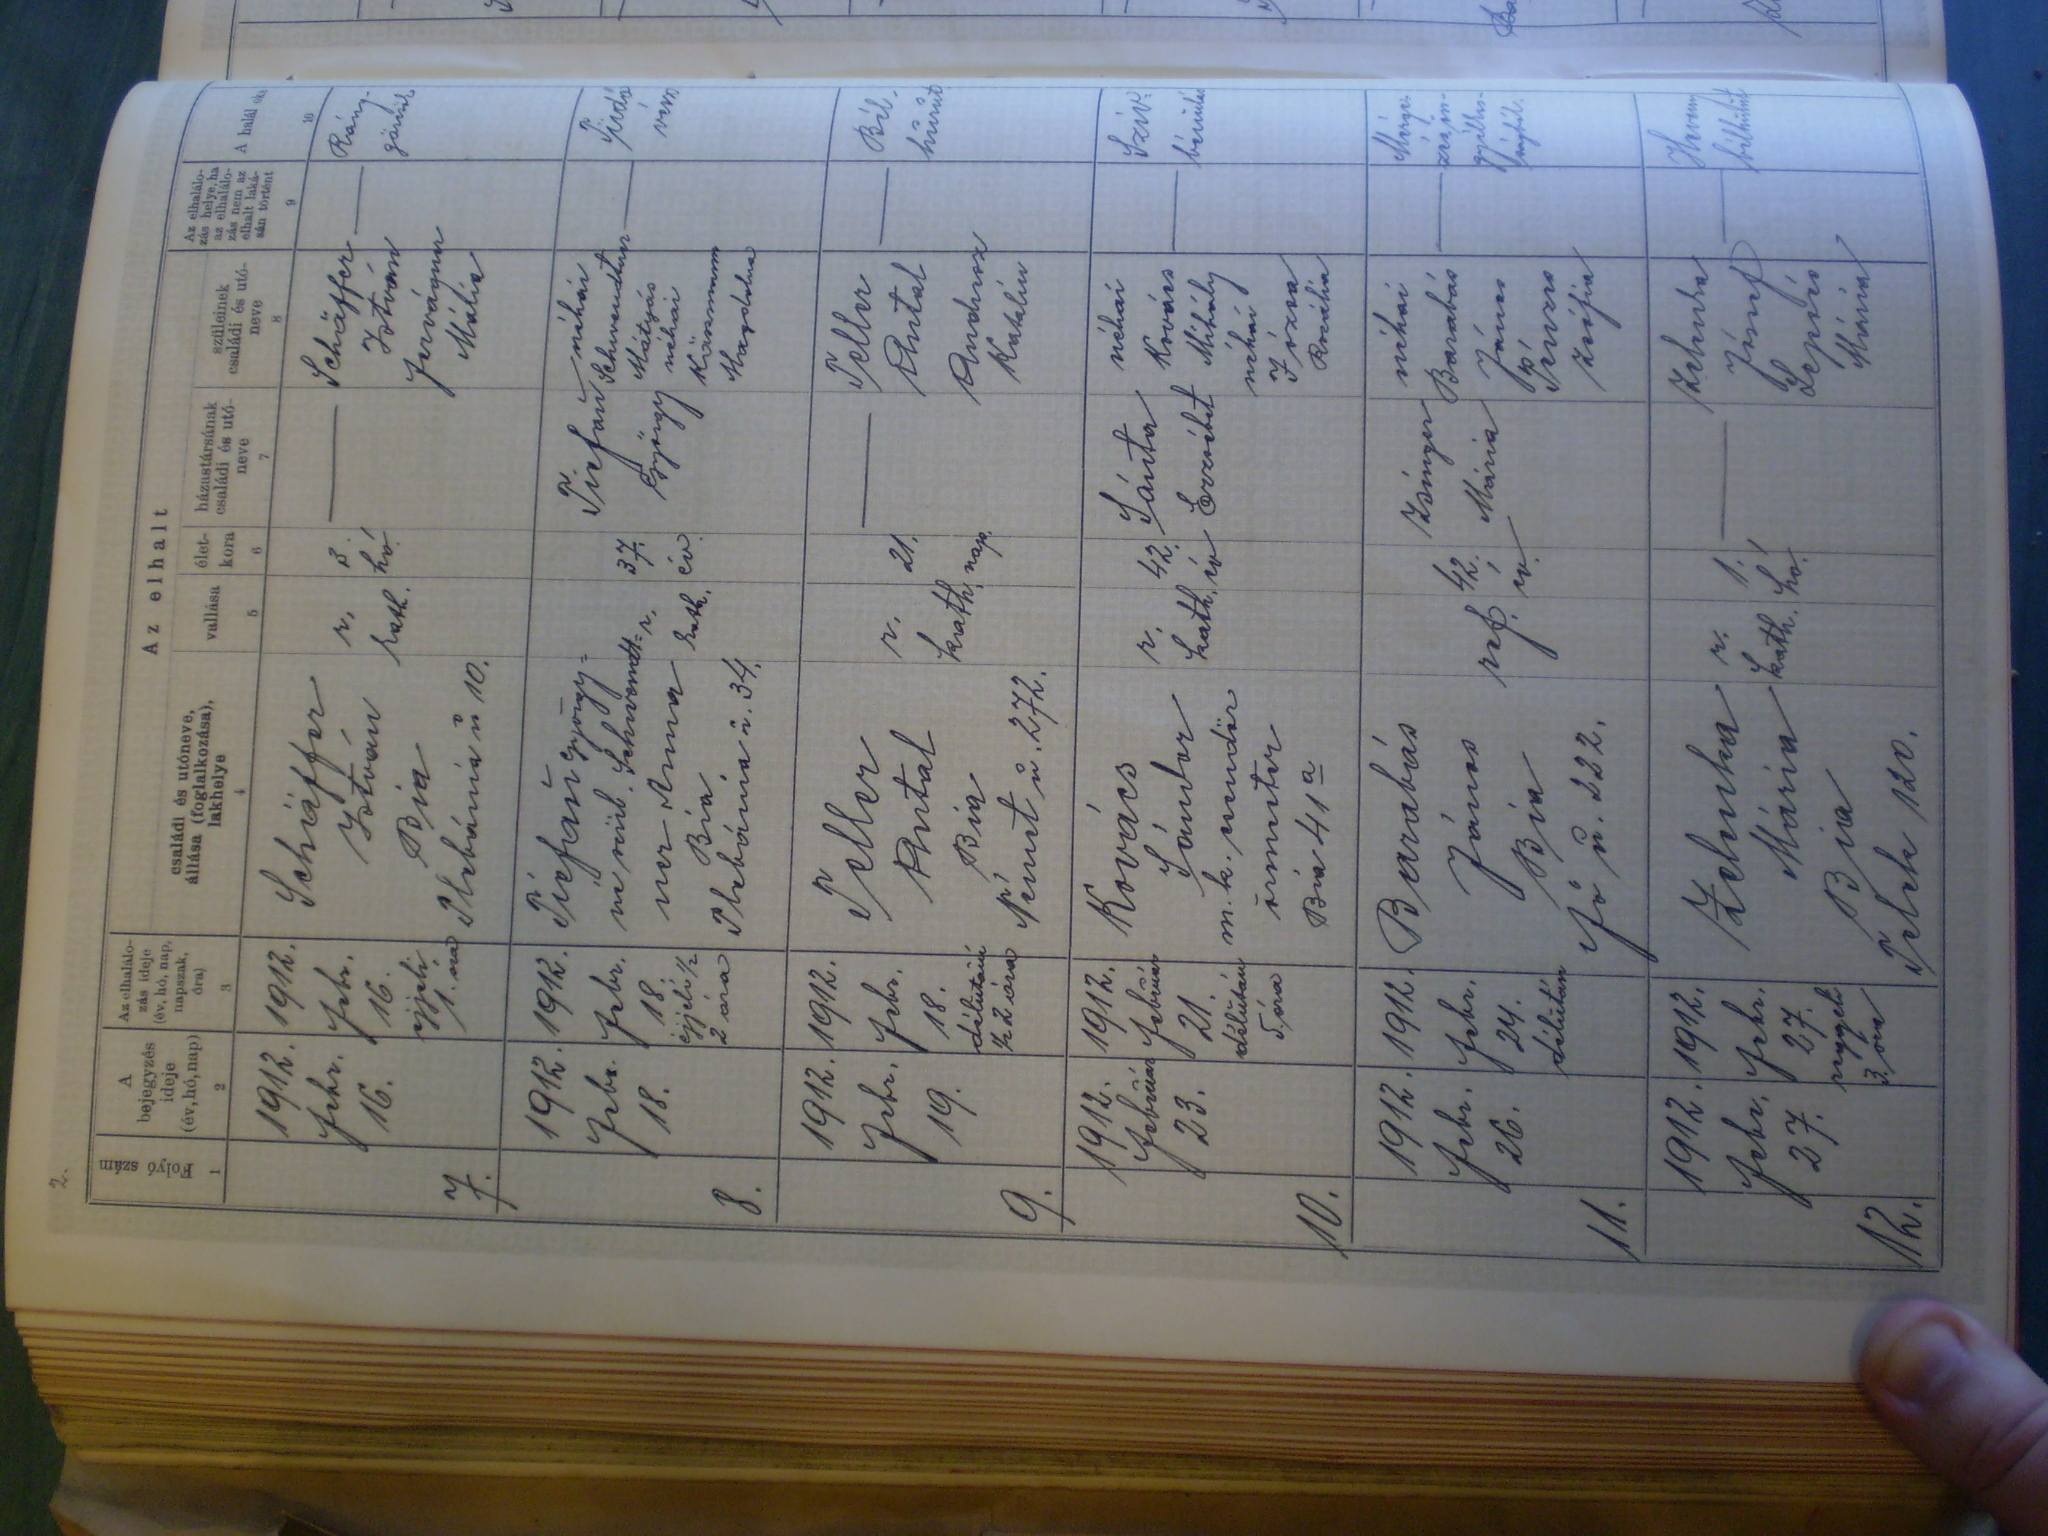 2.
Az elhalt
Folyó szám
A bejegyzés ideje (év, hó, nap)
Az elhalálo-
zás ideje
(év, hó, nap,
napszak,
óra)
családi és utóneve,
állása (foglalkozása),
lakhelye
vallása
élet-
kora
házastársának
családi és utó-
neve
szüleinek
családi és utó-
neve
Az elhalálo-
zás helye, ha
az elhalálo-
zás nem az
elhalt laká-
sán történt
A halál oka
1
2
3
4
5
6
7
8
9
10
7.
1912.
febr.
16.
1912.
febr.
16.
éjjeli
1. óra
Schäffer
István
Bia
Plebánia ú 10.
r.
kath.
3.
hó.
Schäffer
István
Mária
Rán-
görcs
8.
1912.
febr.
18.
1912.
febr.
18.
éjjeli 1/2
2 óra
György-
né szül.
Anna
Bia
Plebánia ú. 34.
r.
kath.
37.
év.
György
néhai
Mátyás
néhai
Magdolna
Tüdő
vész
9.
1912.
febr.
19.
1912.
febr.
18.
délutáni
1/2 2 óra
Teller
Antal
Bia
Német ú. 272.
r.
kath.
21.
nap.
Teller
Antal
Katalin
Bél-
hurut
10.
1912.
február
23.
1912.
február
21.
délután
5 óra
Kovács
Sándor
m. k. csendőr
őrmester
Bia 41 a
r.
kath.
42.
év
Sánta
Erzsébet
néhai
Kovács
Mihály
néhai
Józsa
Rozália
Szív-
bénulás
11.
1912.
febr.
26.
1912.
febr.
24.
délután
Barabás
János
Bia
Fő ú. 222.
ref.
42.
év.
Mária
néhai
Barabás
János
Zsófia
12.
1912.
febr.
27.
1912.
febr.
27.
reggeli
3 óra
Zelenka
Mária
Bia
Telek 120.
r.
kath.
1.
hó.
Zelenka
József
Mária
bélhurut